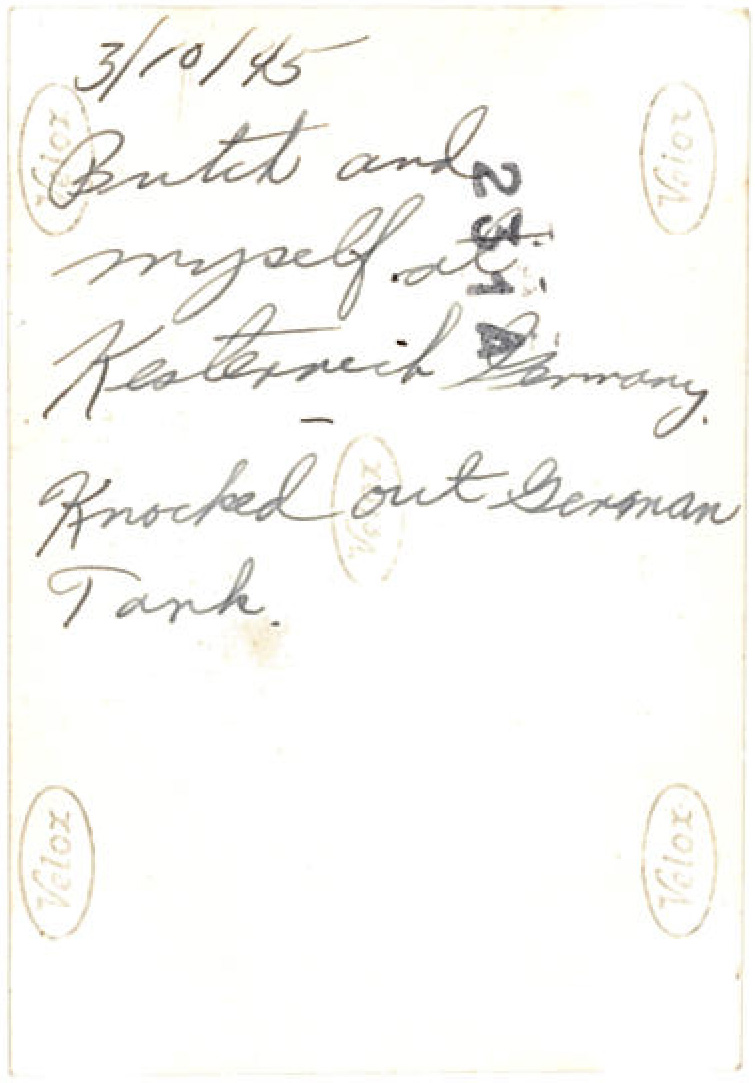 3/10/45
Butch and
myself at
Kesternich Germany.
Knocked out German
Tank.
Velox
Velox
Velox
Velox
Velox